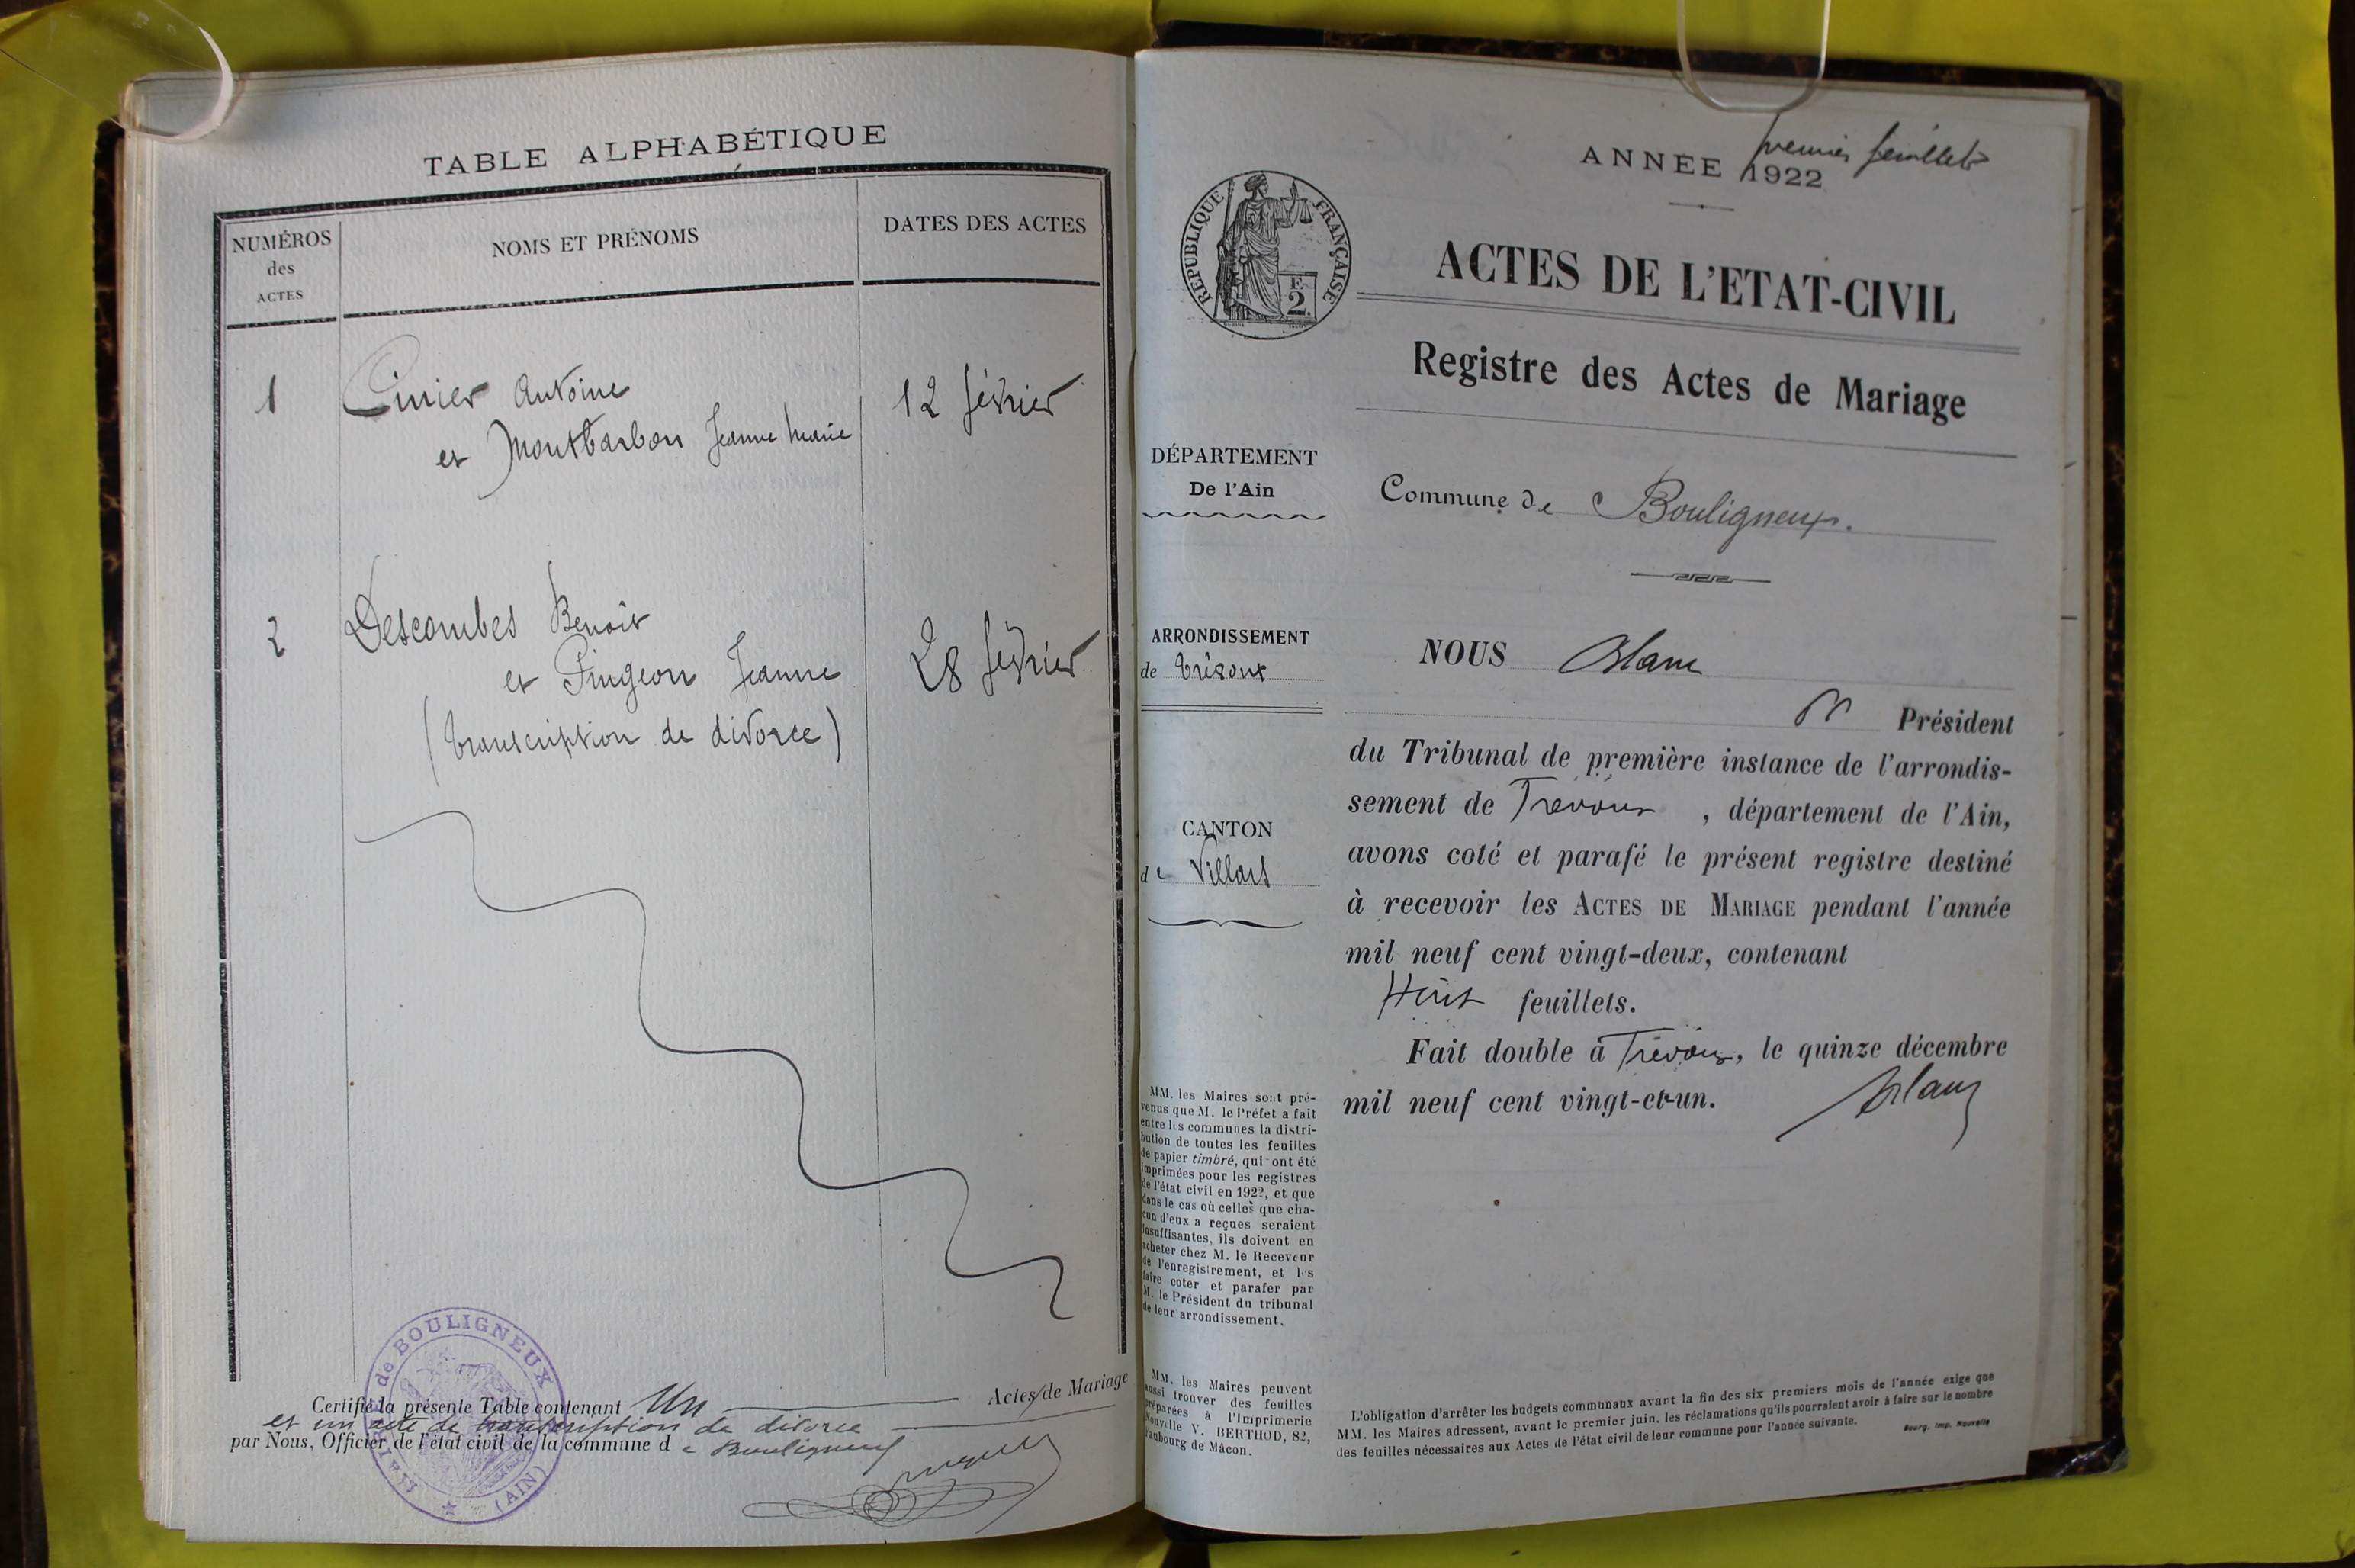 TABLE ALPHABÉTIQUE
NUMÉROS
des
ACTES
NOMS ET PRÉNOMS
DATES DES ACTES
1 Cinier Antoine 12 février
et Montbarbon Jeanne Marie
2 Descombes Benoit
et Pingeon Jeanne 28 février
(transcription de divorce)
Certifié la présente Table contenant Un Actes de Mariage
et un acte de transcription de divorce
par Nous, Officier de l'état civil de la commune de Bouligneux
MAIRIE de BOULIGNEUX
(AIN)
premier feuillet
ANNÉE 1922
RÉPUBLIQUE FRANÇAISE
F.
2.
ACTES DE L'ETAT-CIVIL
Registre des Actes de Mariage
DÉPARTEMENT
De l'Ain
Commune de Bouligneux.
ARRONDISSEMENT
de Trévoux
CANTON
de Villars
NOUS Blanc
Président
du Tribunal de première instance de l'arrondis-
sement de Trévoux, département de l'Ain,
avons coté et parafé le présent registre destiné
à recevoir les ACTES DE MARIAGE pendant l'année
mil neuf cent vingt-deux, contenant
Huit feuillets.
Fait double à Trévoux, le quinze décembre
mil neuf cent vingt-et-un.
Blanc
MM. les Maires sont pré-
venus que M. le Préfet a fait
entre les communes la distri-
bution de toutes les feuilles
de papier timbré, qui ont été
imprimées pour les registres
de l'état civil en 1922, et que
dans le cas où celles que cha-
cun d'eux a reçues seraient
insuffisantes, ils doivent en
acheter chez M. le Receveur
de l'enregistrement, et les
faire coter et parafer par
M. le Président du tribunal
de leur arrondissement.
MM. les Maires peuvent
aussi trouver des feuilles
préparées à l'Imprimerie
Nouvelle V. BERTHOD, 82,
faubourg de Mâcon.
L'obligation d'arrêter les budgets communaux avant la fin des six premiers mois de l'année exige que
MM. les Maires adressent, avant le premier juin, les réclamations qu'ils pourraient avoir à faire sur le nombre
des feuilles nécessaires aux Actes de l'état civil de leur commune pour l'année suivante.
Bourg, Imp. Nouvelle